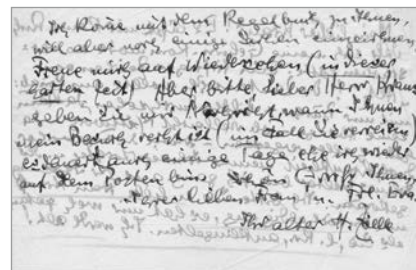 Ich käme mit dem Regelbuch zu Ihnen,
will aber noch einige
Freue mich auf Wiedersehen (in dieser
harten Zeit) Aber bitte lieber Herr
geben Sie mir Nachricht wann Ihnen
mein Besuch recht ist (im Falle Sie verreisen)
es dauert auch einige Tage ehe ich wieder
auf dem Posten bin. Gruß Ihnen,
Ihrer lieben Frau u. Frl.
Ihr alter H. Zille